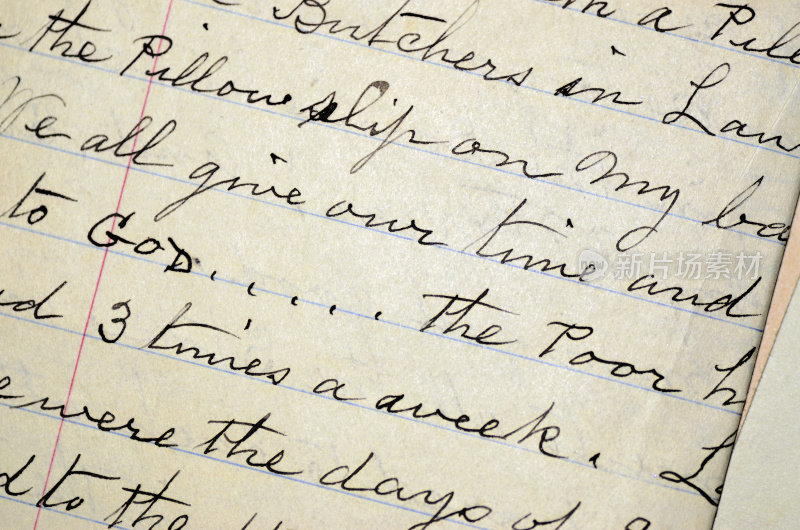 Butchers in Law
the Pillow slip on my ba
We all give our time and
to GOD...... the Poor h
3 times a week.
were the days of
to the
in a Pill
新片场素材